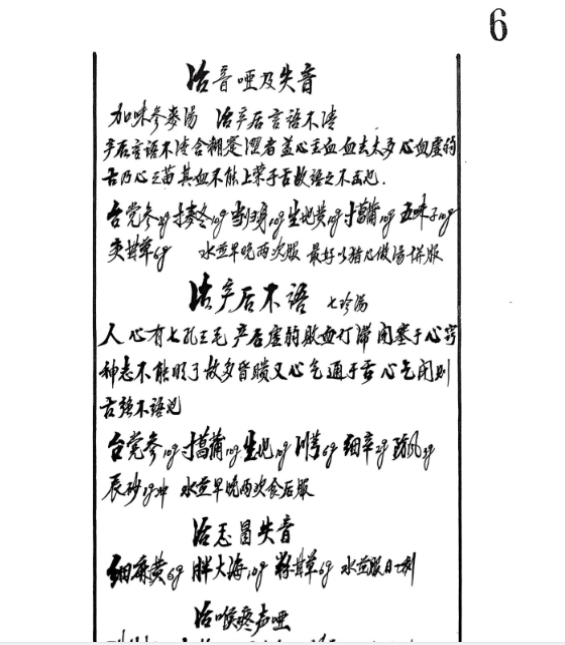 6
治音哑及失音
加味参麦汤 治产后言语不清
产后言语不清含糊蹇涩者盖心主血血去太多心血虚的
舌乃心之苗其血不能上荣于舌故语之不出也.
台党参 寸麦冬10g 当归身10g 生地黄10g 寸菖蒲10g 五味子10g
炙甘草6g 水煎早晚两次服 最好以猪心做汤併服
治产后不语 七珍汤
人心有七孔三毛 产后虚的败血打滞 闭塞于心窍
神志不能明了 故多昏瞆 又心气通于舌 心气闭则
舌强不语也
台党参10g 寸菖蒲10g 生地10g 川芎6g 细辛 防风
辰砂 冲 水煎早晚两次食后服
治 冒失音
细麻黄6g 胖大海10g 粉甘草6g 水煎服日一剂
治喉疼声哑